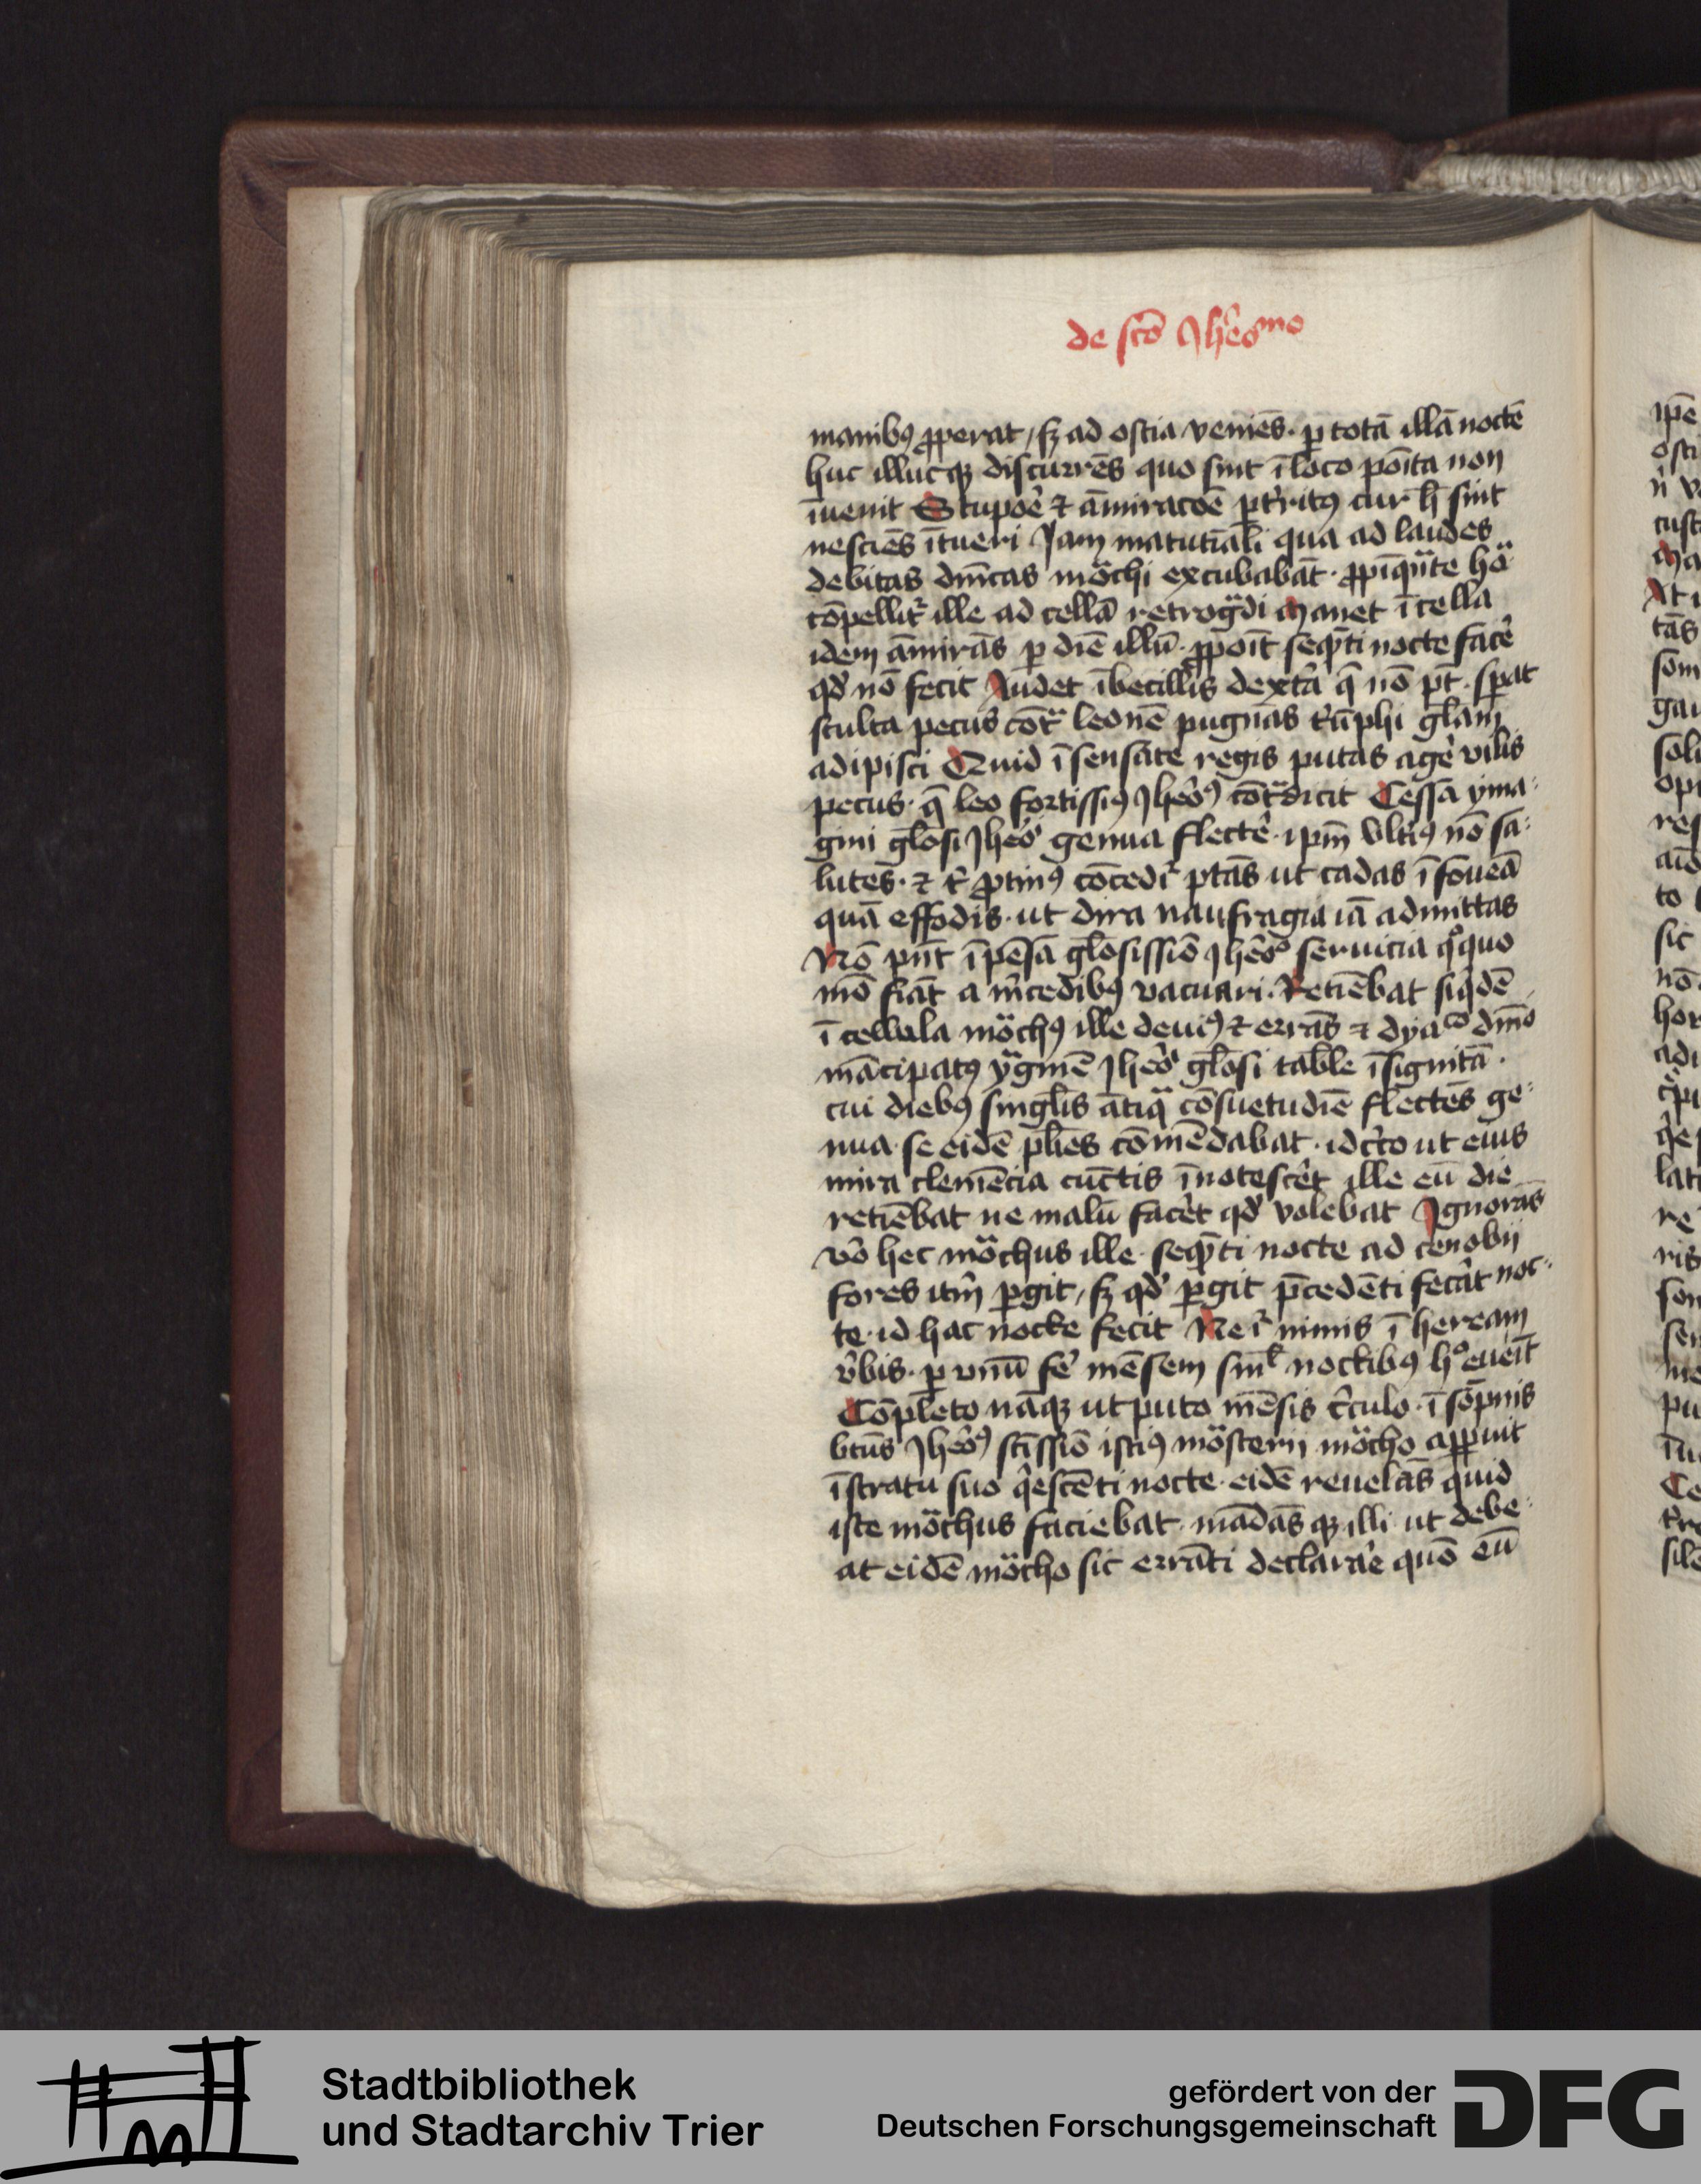 de sctō Jheōmo
manibꝯ ꝓperat / sꝫ ad ostia veniēs · ꝑ totā illā noctē
huc illucqꝫ discurrēs quo sint ī loco poīta non
īuenit Stupoē ⁊ āmiracōe ꝑtritꝯ cur h̄ sint
nesciēs ītueri Jam matutīali qua ad laudes
debitas dnīcas moͣchi excubabāt · ꝓpīqͣnte hoͣ
cōpellitᷣ ille ad cellā retrogͣdi Manet ī cella
idem āmirās ꝑ diē illū · ꝓpoīt seqn̄ti nocte facē
qd nō fecit Audet ībecillis dextͣa q̄ nō pt̄ · sꝑat
stulta pecus cōtͣ leonē pugnās tͥūphi glām
adipisci Quid īsensate regis putas agē vilis
pecus · q̄ leo fortissiꝯ Jheōꝯ cōtͣdicit Cessa yma
gini gl̄osi Jheōⁱ genua flectē · ipm̄ vltiꝯ nō sa
lutes · ⁊ tͥ ꝓtinꝯ cōcedīᷣ ptās ut cadas ī foueā
quā effodis · ut dira naufragia iā admittas
Nō pn̄t īpēsa gl̄osissiō Jheōᵒ seruicia qͦquo
mō fiāt a mͨcedibꝯ vacuari · Retiēbat siqͥdē
ī cellula moͣchꝯ ille deuiꝯ ⁊ errās ⁊ dyaᶜᵒ dnīo
mācipatꝯ yͣginē Jheōⁱ gl̄osi tabl̄e īsignitā ·
cui diebꝯ singl̄is ātiqͣ cōsuetudīe flectēs ge
nua · se eidē pl̄ies cōmēdabat · idcͨto ut eius
mira clemēcia cūctis īnotescēt ille eū die
retiēbat ne malū facēt qd volebat Jgnorās
vō hec moͣchus ille · seqn̄ti nocte ad cenobij
fores itm̄ ꝑgit / sꝫ qd ꝑgit p̄cedēti fecāt noc
te · id hac nocte fecit Ne īᷣ nimis ī heream
v̄bis · ꝑ vnū fē mēsem siml̄ noctibꝯ hᵒ eueīt
Cōpleto nāqꝫ ut puto mēsis cͥculo · ī sōpnis
btūs Jheōꝯ sctissiō istiꝯ moͣsterii moͣcho apꝑuit
ī stratu suo qͥescēti nocte · eidē reuelās quid
iste moͣchus faciebat · mādās qꝫ illi ut debe
at eidē moͣcho sic errāti declarāe quō eū
Stadtbibliothek
und Stadtarchiv Trier
gefördert von der
Deutschen Forschungsgemeinschaft
DFG